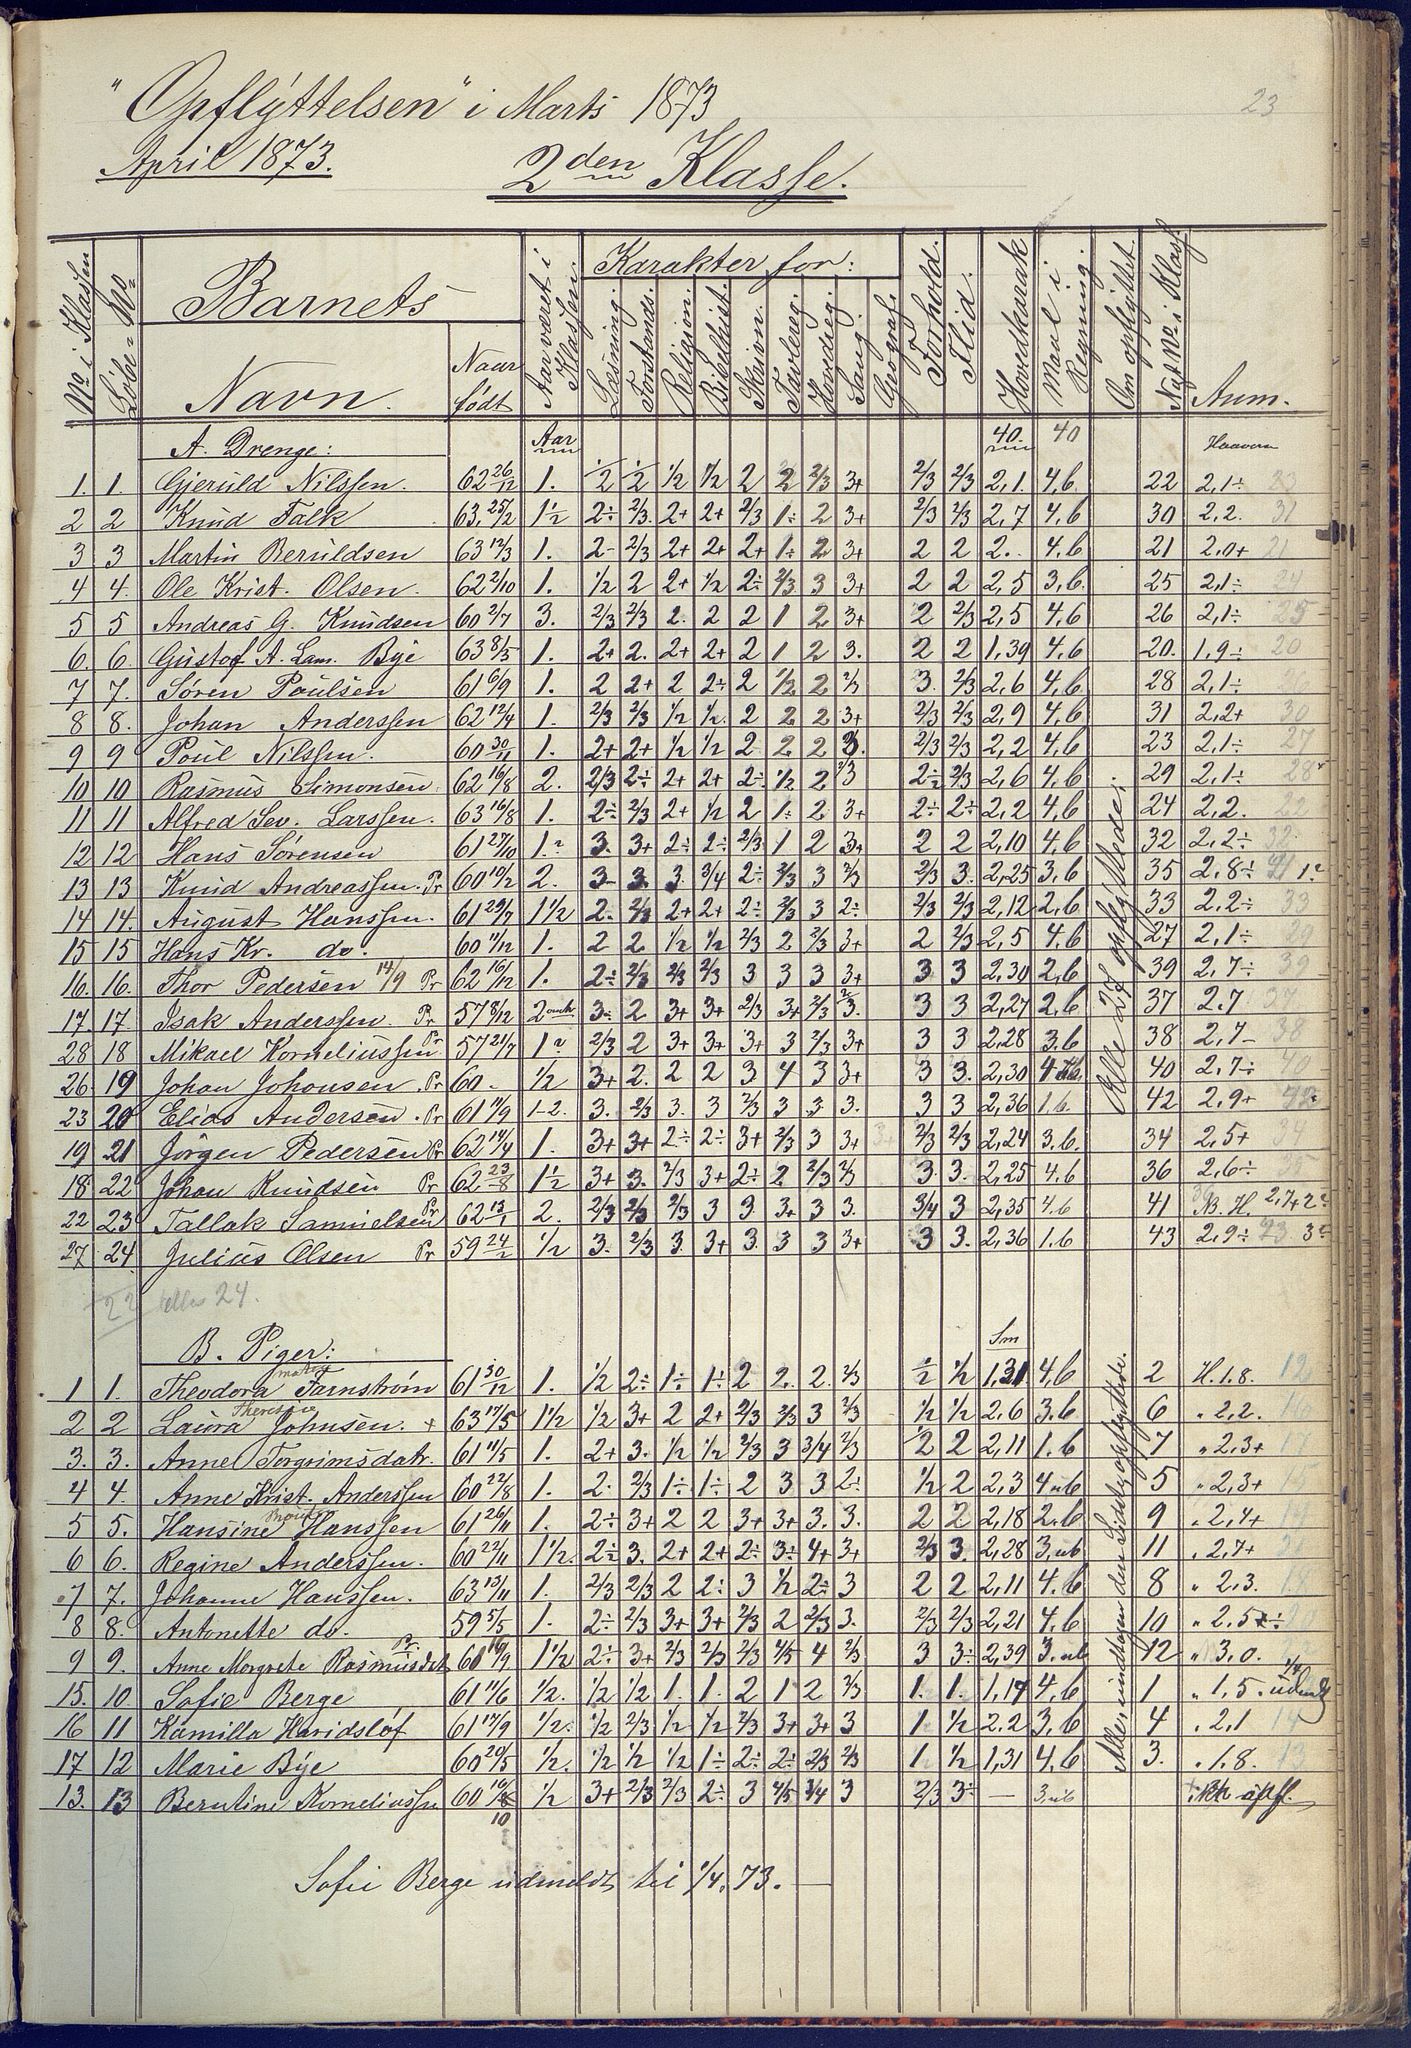 "Opflyttelsen" i Marts 1873
23
April 1873.
2den Klasse.
No i Klassen
Löbe-No
Barnets
Navn.
Naar født
Aar været i Klassen.
Karakter for:
Læsning.
Forstands.
Religion.
Bibelhist.
Skrivn.
Tavlereg.
Hovedreg.
Sang.
Geograf.
Forhold.
Flid.
Hovedkarak
Maal i Regning.
Om opflyttet.
Nyt No i Klass.
Anm.
A. Drenge: Aar 40. 40
1. 1. Gjeruld Nilssen. 62 26/12 1. 1/2 1/2 1/2 1/2 2 2 2/3 3+ 2/3 2/3 2,1. 4,b. 22 2,1÷ 23
2 2 Knud Falk 63, 25/2 1 1/2 2÷ 2/3. 2+ 2+ 2/3 1÷ 2 3+ 2/3 2/3 2,7 4,b 30 2,2. 31
3 3 Martin Beruldsen 63 12/3 1. 2- 2/3 2+ 2+ 2+ 1÷ 2 3+ 2 2 2.. 4,b 21 2,0+ 21
4 4. Ole Krist. Olsen. 62 2/10 1. 1/2 2 2+ 1/2 2÷ 2/3 3 3+ 2 2 2,5 3,b. 25 2,1÷ 24
5 5 Andreas G. Knudsen 60 2/7 3. 2/3 2/3 2. 2 2 1 2 3+ 2 2/3 2,5 4,b 26 2,1÷ 25
6. 6. Gustof A. Lam. Bye 63 8/5 1. 2+ 2. 2+ 2+ 2 1 2 3. 2 2 1,39 4,b 20. 1,9÷ 20
7 7. Søren Poulsen 61 6/9 1. 2 2+ 2 2÷ 2 1/2 2 2/3 3. 2/3 2,6 4,b. 28 2,1÷ 26
8 8. Johan Anderssen 62 12/4 1. 2/3 2/3 1/2 1/2. 2 2 2 3+ 2/3 2/3 2,9 4,b 31 2,2+ 30
9 9 Poul Nilssen. 60 30/11 1. 2+ 2+ 1/2 1/2 2 2. 2 3. 2/3 2/3 2,2 4,b 23 2,1÷ 27
10 10 Rasmus Simonsen. 62 16/8 2. 2/3 2÷ 2+ 2+ 2÷ 1/2 2 2/3 2÷ 2/3 2,6 4,b 29 2,1÷ 28
11 11 Alfred Sev. Larssen. 63 16/8 1. 2÷ 2/3 2+ 1/2 2 1÷ 2 3+ 2÷ 2÷ 2,2 4,b 24 2,2. 22
12 12 Hans Sørensen 61 27/10 1. 3. 3+ 2÷ 2÷ 2/3 1 2 3+ 2 2 2,10 4,b 32 2,2÷ 32
13 13 Knud Andreassen. Pr 60 10/2 2. 3- 3. 3. 3/4 2÷ 2/3 3 2/3 2/3 3. 2,25 3,b 35 2,8÷ 41
14 14. August Hanssen. 61 29/7 1 1/2 2. 2/3 2+ 2+ 2÷ 2/3 3 2÷ 2/3 2/3 2,12 2,b 33 2,2÷ 33
15 15 Hans Kr. do. 60 11/12 1. 2 2 1/2 1/2 2/3 2 2/3 3+ 2 2/3 2,5 4,b 27 2,1÷ 29
16. 16. Thor Pedersen 14/9 Pr 62 16/12 1. 2÷ 2/3 2/3 2/3 3 3 3 3+ 3 3 2,30 2,b 39 2,7÷ 39
17. 17. Isak Anderssen. Pr 57 8/12 3- 2 3+ 3+ 2/3 3+ 2/3 3. 3 3 2,27 2,b 37 2,7 37
28 18 Mikael Korneliussen Pr 57 21/7 2/3 2 3+ 3+ 3+ 3 2/3 3+ 3 3 2,28 3,b 38 2,7- 38
26 19 Johan Johansen. Pr 60. 1/2 3+ 2. 2 2 3 4 3 3+ 3 3. 2,30 40 2,7÷ 40
23 20 Elias Andersen. Pr 61 11/9 1-2. 3. 2/3 3. 3 2/3 3 3. 3. 3 3 2,36 1,b. 42 2,9+ 42
19 21 Jörgen Pedersen Pr 62 14/4 1. 3+ 3+ 2÷ 2÷ 3+ 2/3 3 3+ 3+ 2/3 2/3 2,24 3,b. 34 2,5+ 34
18 22 Johan Knudsen Pr 62 23/8 1 1/2 3+ 3. 2/3 3+ 2÷ 2 2/3 2/3 3. 3. 2,25 4,b 36 2,6÷ 35
22 23 Tallak Samuelsen Pr 62 13/1 2. 2/3 2/3 2/3 3 3. 3+ 3 3. 3/4 3 2,35 4,b 41 N.H. 2,7+
27 24. Julius Olsen Pr 59 24/2 1/2 3. 2/3 3. 3+ 3. 3 3 3+ 3 3. 2,36 1,b 43 2,9÷ 43
Alle 24 opflyttede.
22 24.
B. Piger: Sm
1 1. Theodora Farnstrøm 61 30/12 1. 1/2 2÷ 1÷ 1÷ 2 2. 2. 2/3 1/2 1/2 1,31 4,b 2 H. 1,8. 12
2 2 Laura Therese Johnsen. + 63 17/5 1 1/2 1/2 3+ 2 2+ 2/3 2/3 3 2/3 1/2 1/2 2,6 3,b 6 " 2,2. 16
3. 3. Anne Torgrimsdatr. 61 11/5 1. 2+ 3. 1/2 1/2 2/3 3 3/4 2/3 2 2 2,11 1,b 7 " 2,3+ 17
4 4. Anne Krist. Anderssen 60 22/8 1. 2. 2/3 1÷ 1÷ 2 3 3 2÷ 1/2 2 2,3 4 ub 5 " 2,3+ 15
5 5. Hansine Hanssen 61 26/11 1. 2÷ 3+ 2 2 3+ 3+ 3. 3. 2 2 2,18 2,b 9 " 2,4+ 19
6 6. Regine Anderssen. 60 22/11 1 1/2. 2÷ 3. 2+ 2+ 2÷ 3÷ 4+ 3+ 2/3 3. 2,28 3, ub 11 " 2,7+ 21
7 7. Johanne Hanssen. 63 13/11 1. 2/3 2/3 2 2÷ 3 1/2 2÷ 3 2 2 2,11 4,b 8 " 2,3. 18
8 8. Antonette do. 59 5/5 1. 2÷ 2/3 3+ 3+ 2/3 2 2/3 3. 2/3 2/3 2,21 4,b 10 " 2,5÷ 20
9 9. Anne Morgrete Rasmusdat Pr. 60 16/9 1 1/2 2÷ 3+ 2/3 2/3 2/3 4/5 4 2/3 3 3÷ 2,39 3. ub 12 " 3,0. 22
15. 10. Sofie Berge 61 11/6 1/2. 1/2 1/2 1. 1. 2 1 2 2/3 1. 1. 1,17 4,b 1 " 1,5. 1/4 udm
16 11 Kamilla Havidsløf 61 17/9 1/2. 1/2 2/3 1/2 1/2 2/3 3+ 3+ 3 1 1/2 2,2 3,b 4 " 2,1 14
17 12 Marie Bye 60 20/5 1/2. 1/2 1/2 1/2 1÷ 2÷ 2÷ 2/3 2/3 1 1/2 1,31 4,b 3. " 1,8. 13
13. 13 Berntine Korneliussen 60 10/8 1/2 3+ 2/3 2/3 2÷ 3 4/5 3/4 3 2/3 3÷ — 3, ub ikke opfl.
10
Sofie Berge udmeldt til 1/4. 73. —